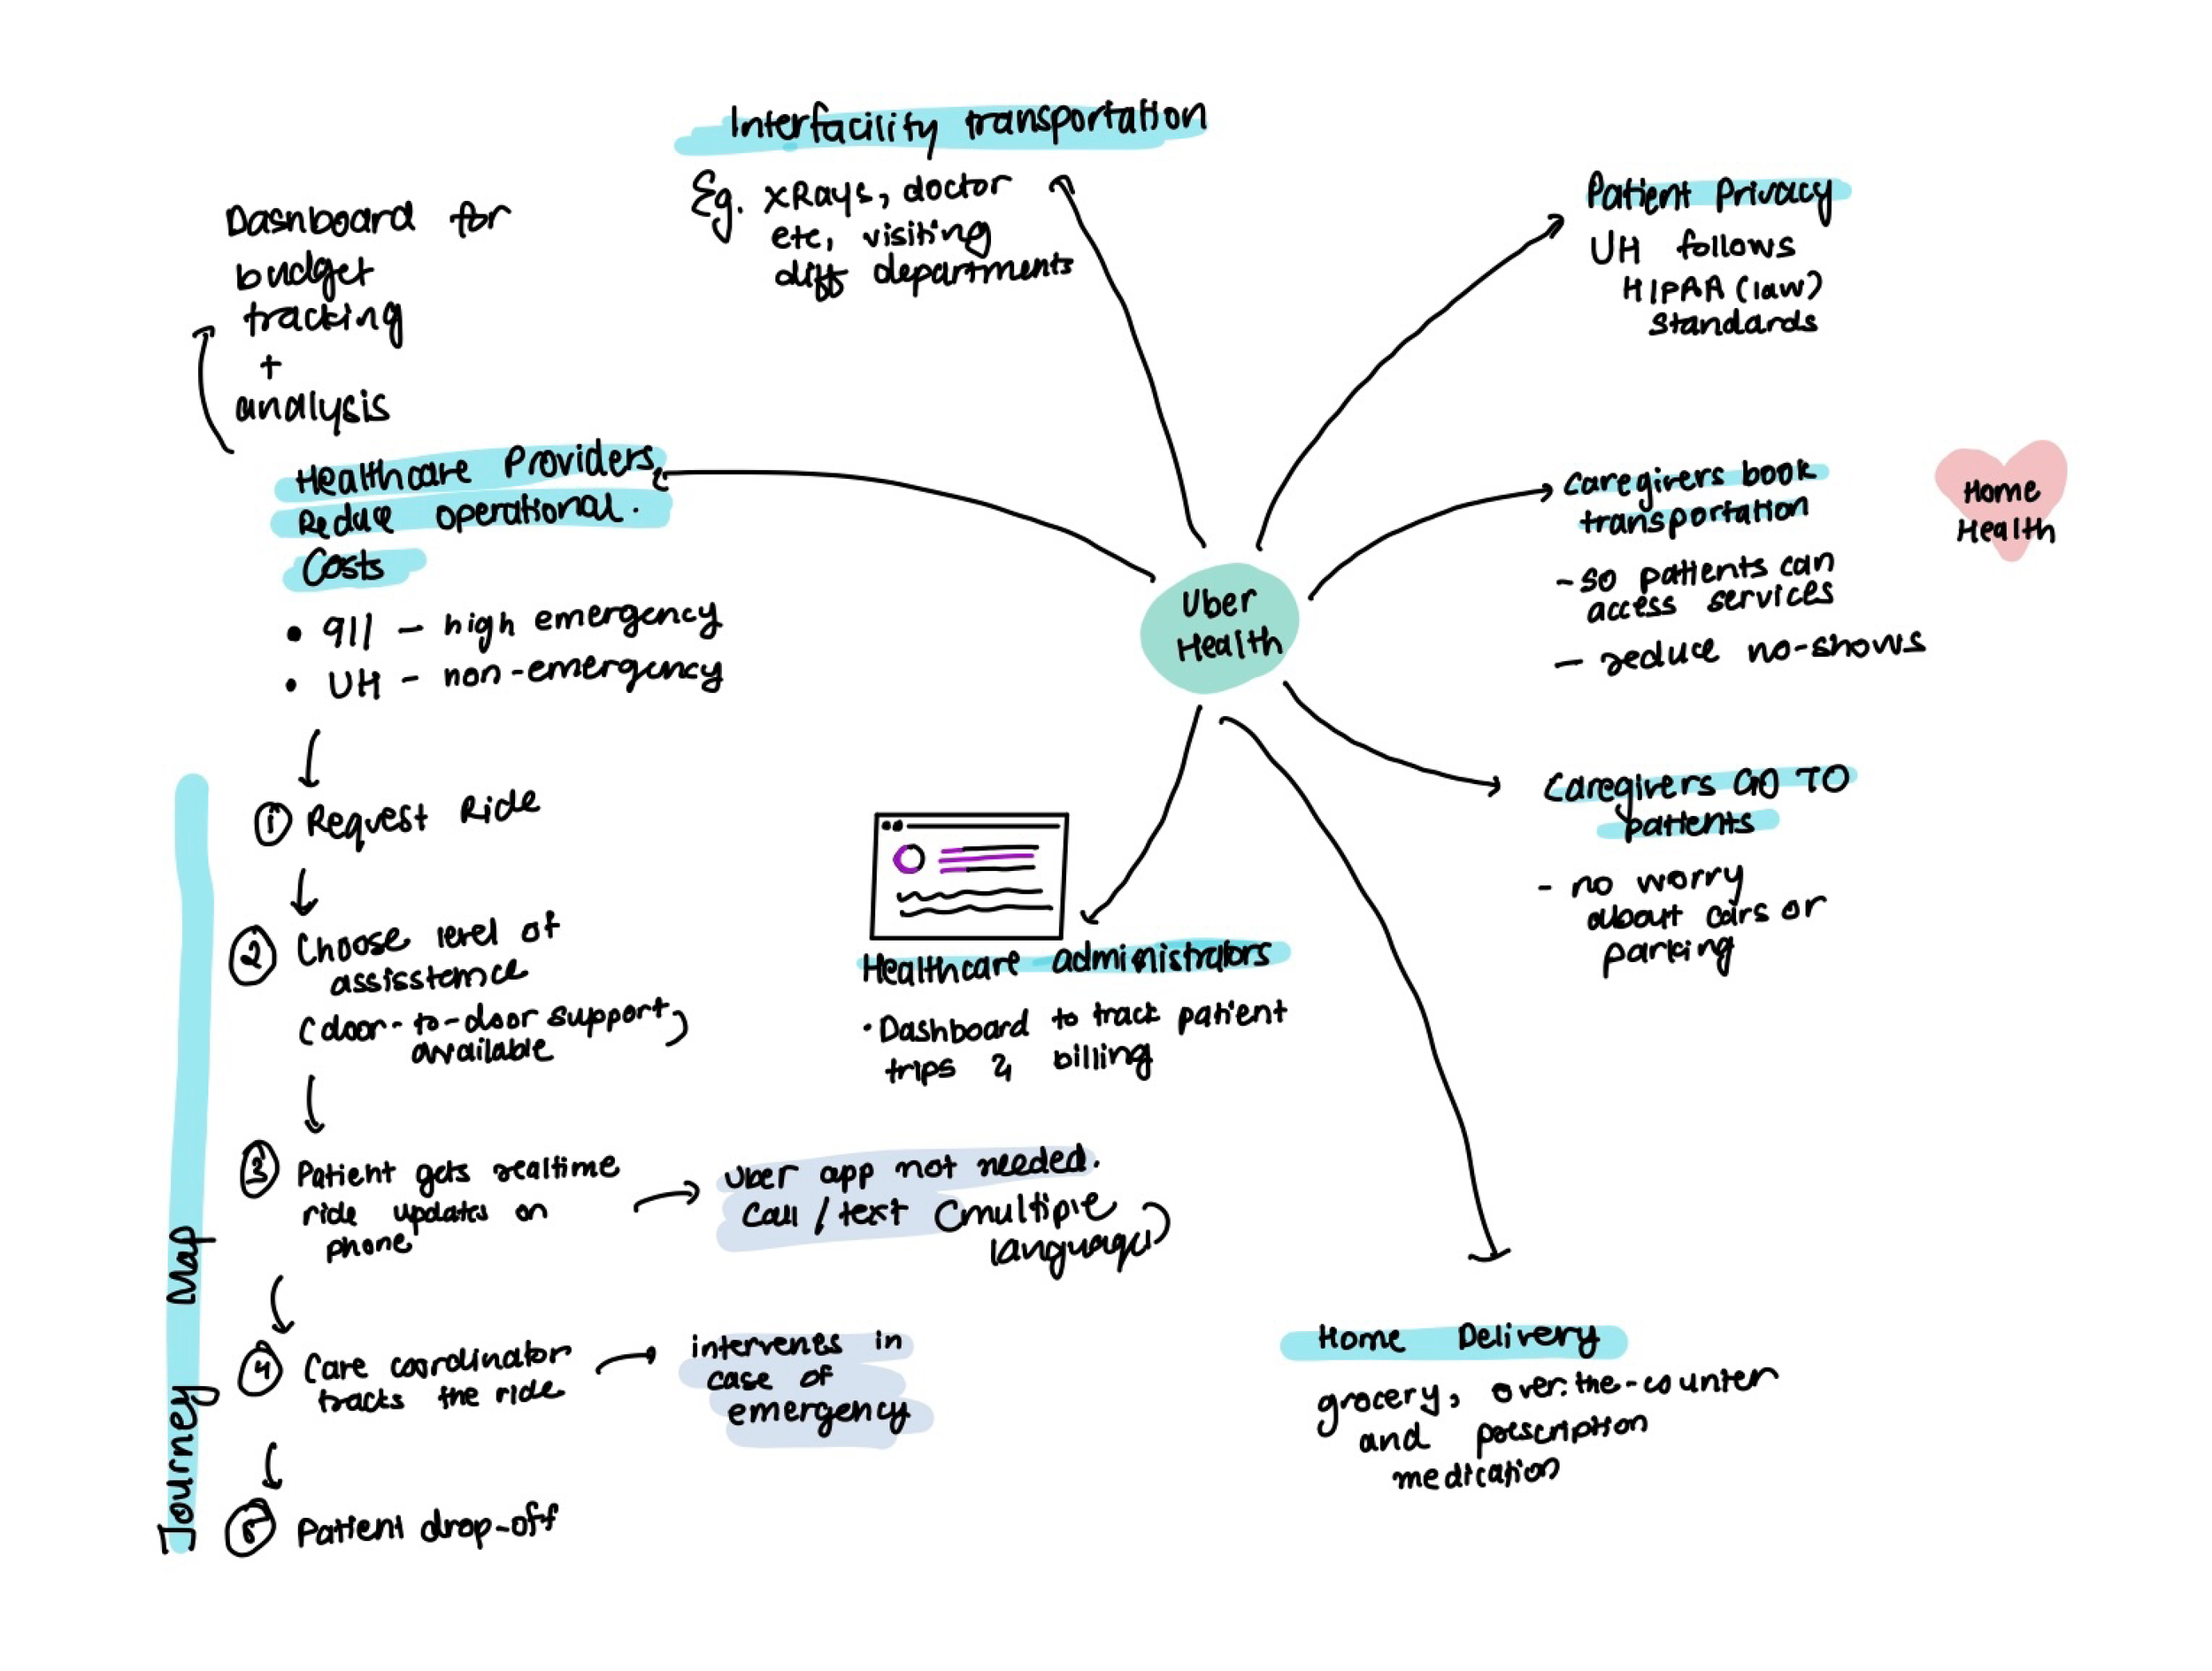 Interfacility transportation
Eg. xRays, doctor
etc, visiting
diff departments
Dashboard for
budget
tracking
+
analysis
Healthcare Providers
Reduce operational.
Costs
• 911 – high emergency
• UH – non-emergency
Journey Map
1 Request Ride
2 Choose level of
assisstemce
(door-to-door support
available)
3 Patient gets realtime
ride updates on
phone
Uber app not needed.
Call / text (multiple
languages)
4 Care coordinator
tracks the ride
intervenes in
case of
emergency
5 Patient drop-off
Uber
Health
Healthcare administrators
• Dashboard to track patient
trips & billing
Patient Privacy
UH follows
HIPAA (law)
standards
Caregivers book
transportation
- so patients can
access services
- reduce no-shows
Home
Health
Caregivers GO TO
patients
- no worry
about cars or
parking
Home Delivery
grocery, over-the-counter
and prescription
medication